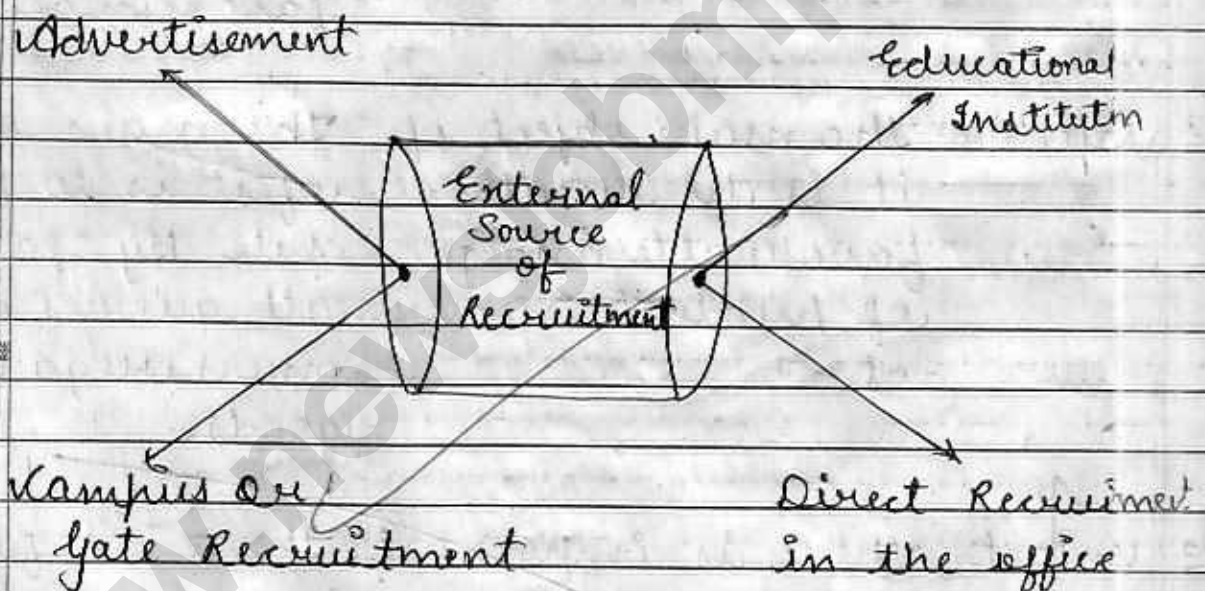 Advertisement
Educational
Institutm
External
Source
of
Recruitment
Campus Or
Gate Recruitment
Direct Recruiment
in the office
www.newsgbm